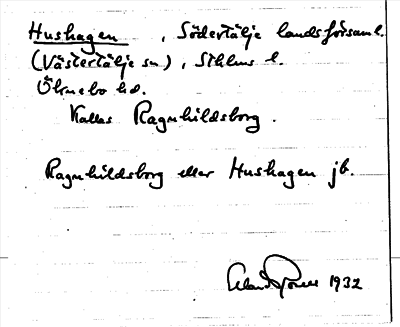 Hushagen , Södertälje landsförsaml.
(Västertälje sn), Sthlms l.
Öknebo hd.
Kallas Ragnhildsborg.
Ragnhildsborg eller Hushagen jb.
1932